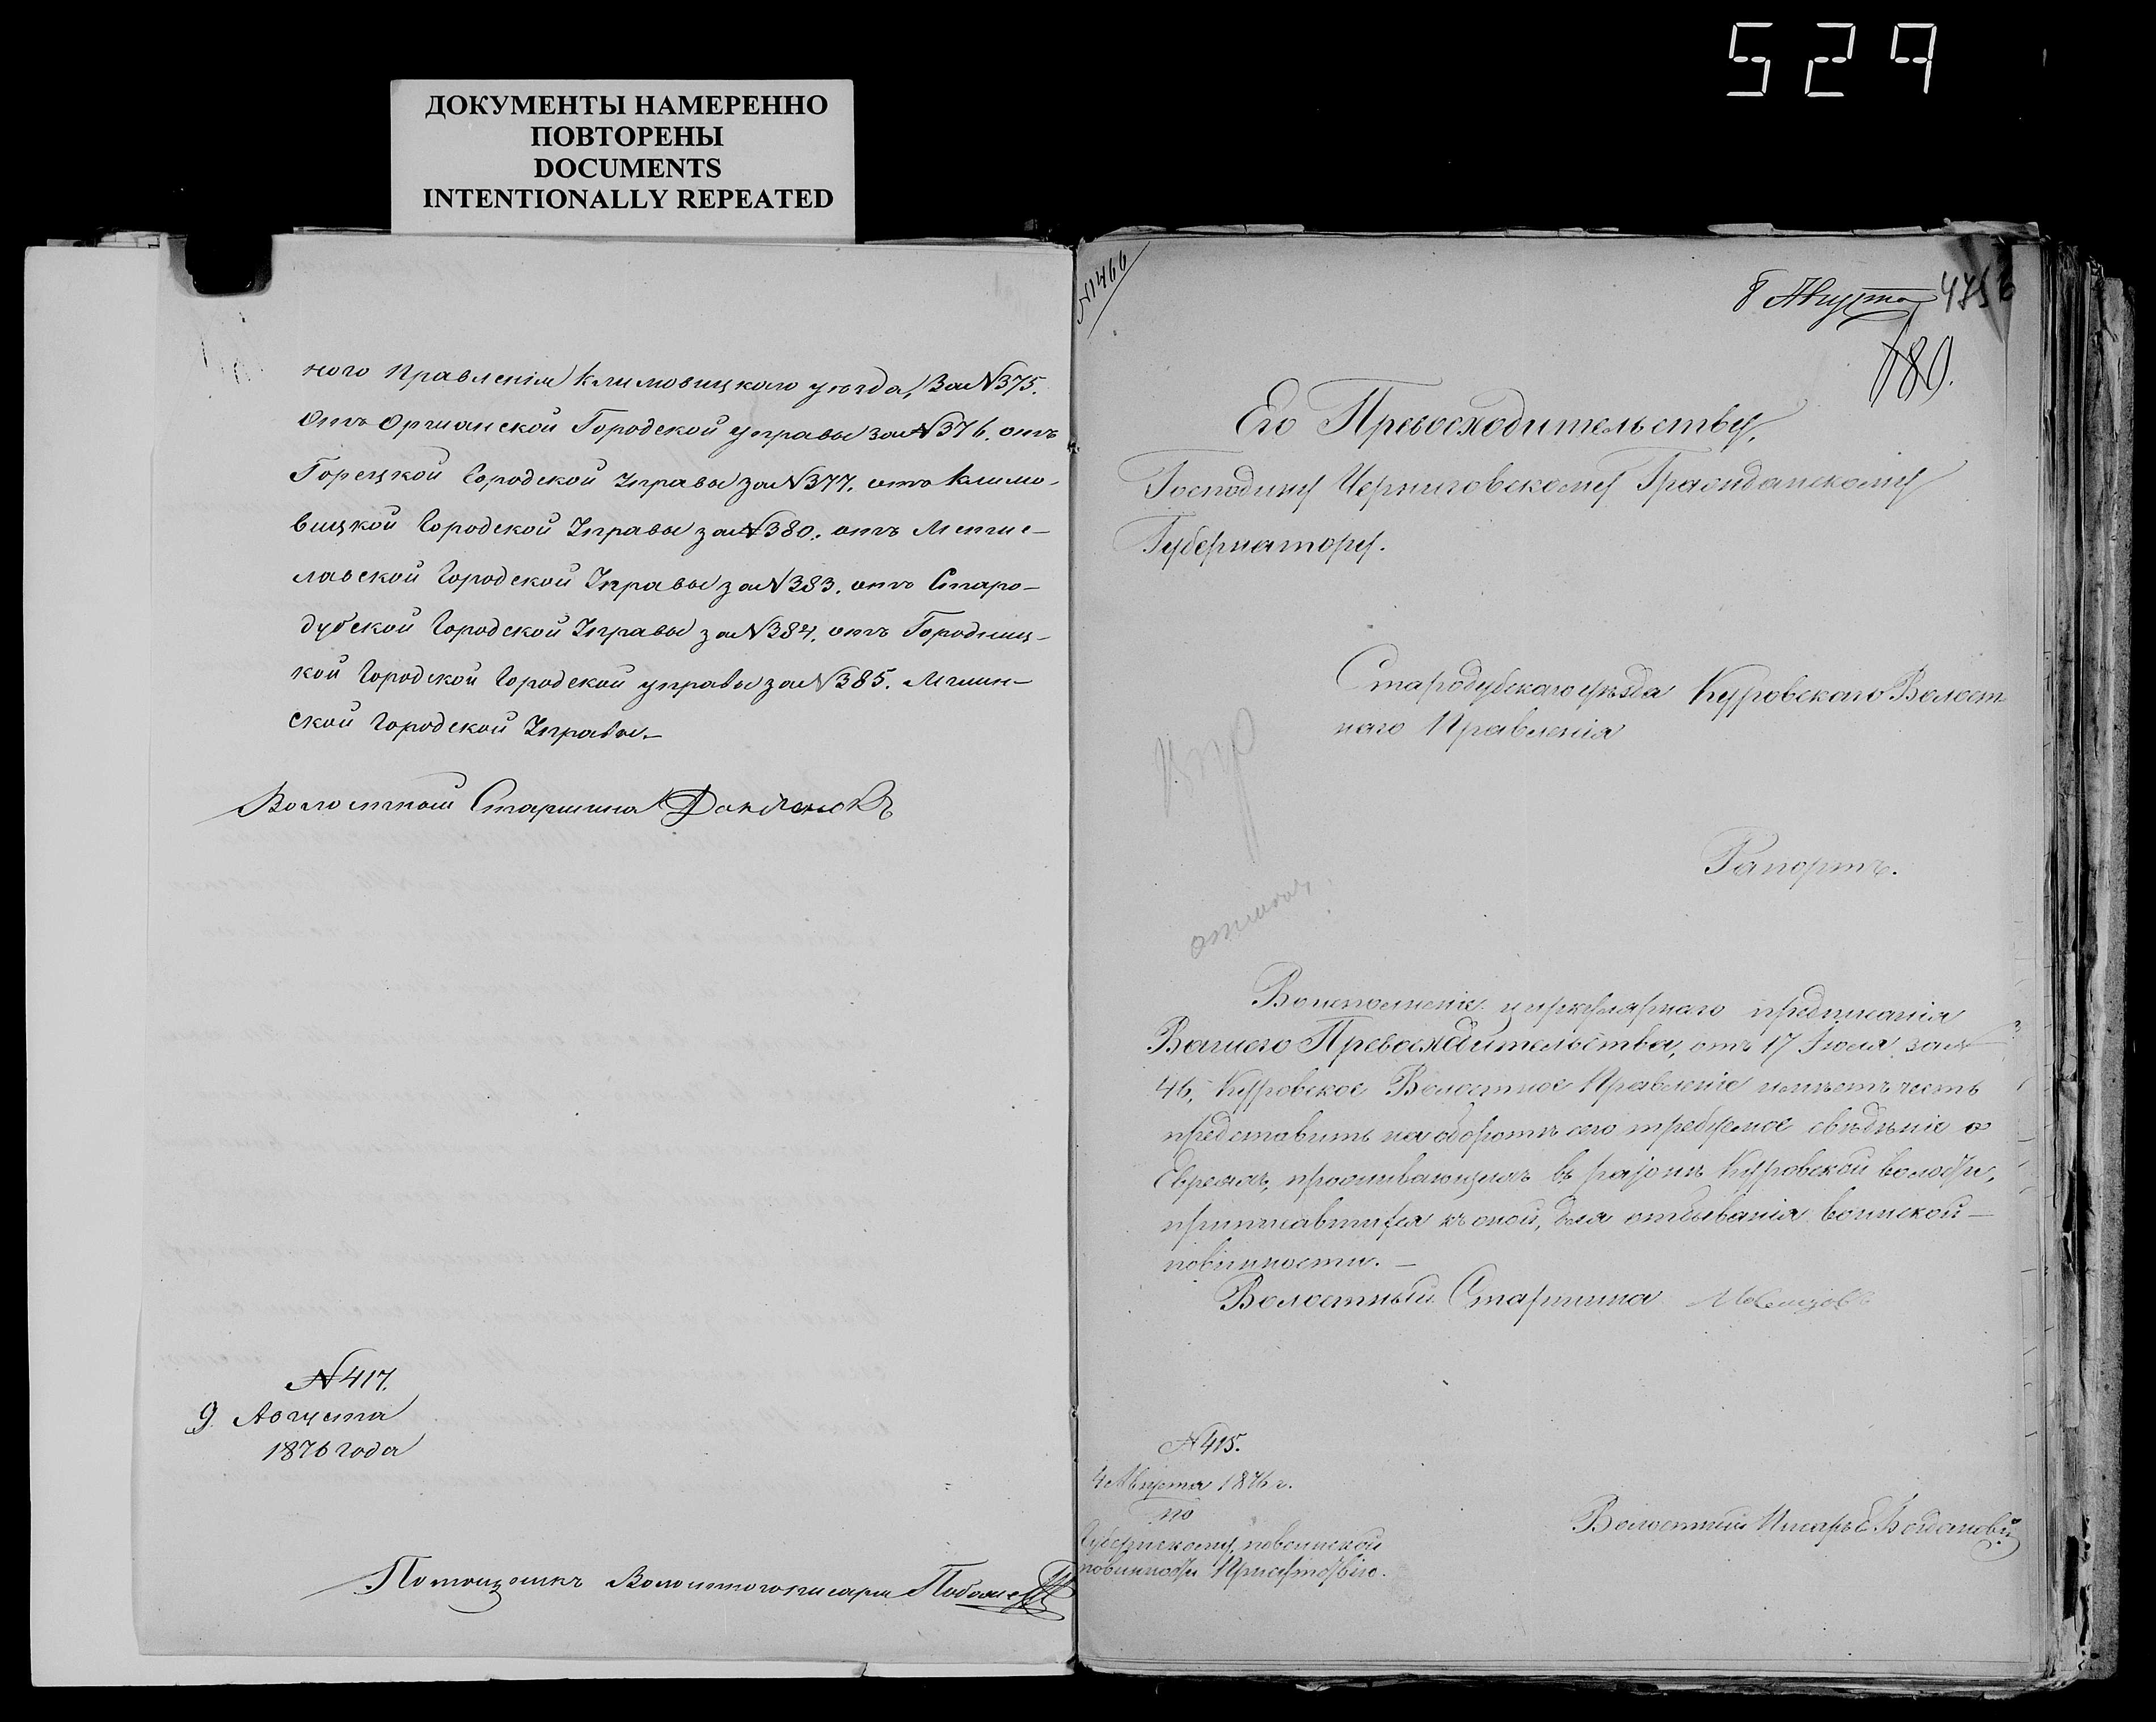 529
ДОКУМЕНТЫ НАМЕРЕННО
ПОВТОРЕНЫ
DOCUMENTS
INTENTIONALLY REPEATED
ного Правленія Климовицкаго уѣзда, За №375.
Отъ Оршанской Городской управы за №376. отъ
Горецкой Городской Управы за №377. отъ Климо-
вицкой Городской Управы за №380. отъ Мстис-
лавской Городской Управы за №383. отъ Старо-
дубской Городской Управы за №384. отъ Городниц-
кой Городской Городской управы за №385. Мглин-
ской Городской Управы.
Волостной Старшина
№417.
9 Августа
1876 года
Помощникъ Волостного писаря
№1466
8 Августа
180.
Его Превосходительству,
Господину Черниговскому Гражданскому
Губернатору.
Стародубскаго уѣзда Курровскаго Волост-
наго Правленія
Рапортъ.
Во исполненіе циркулярнаго предписанія
Вашего Превосходительства, отъ 17 Іюля за №
46, Курровское Волостное Правленіе имѣетъ честь
представить на оборотѣ сего требуемое свѣдѣніе о
Евреяхъ, проживающихъ въ раіонѣ Курровской волости,
приписавшихся къ оной, для отбыванія воинской
повинности. —
Волостный Старшина
№415.
4 Августа 1876 г.
по
Губернскому, по воинской
повинности Присутствію.
Волостный Писарь